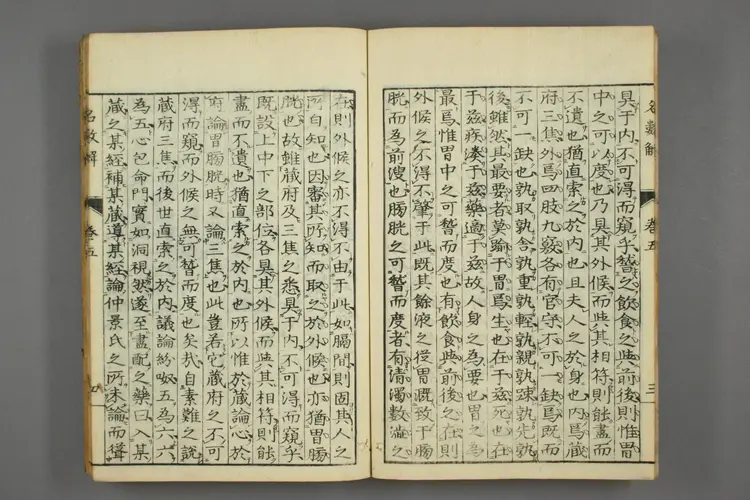 名数解
卷五
三
具于内不可得而窺乎瞽之飲食之與前後則惟胃
中之可以度也乃具其外候而與其相符則能盡而
不遺也猶直索之於内也且夫人之於身也内爲藏
府三焦外爲四肢九竅各有官守不可一缺爲既而
不可一缺也孰取孰舍孰重孰輕孰親孰踈孰先孰
後雖然其最要者莫踰于胃爲生也在于茲死也在
于茲疾湊于茲藥適于茲故人身之為要也胃之為
最焉惟胃中之可瞽而度也有飲食與前後之在則
外候之不得不肇于此既其餘液之役胃漑效于膓
胱而為前溲也膓胱之可瞽而度者有清濁數溢之
在則外候之亦不得不由于此如膓間則固其人之
所自知也因審其所知而取之於外候也亦猶胃膓
胱也故雖藏府及三焦之悉具于内不可得而窺乎
既設上中下之部位各具其外候而與其相符則能
盡而不遺也猶直索之於内也所以惟於藏論心於
府論胃膓胱時又論三焦也此豈若它藏府之不可
得而窺而外候之無可瞽而度也矣哉自素難之說
藏府三焦而後世直索之於内議論紛呶五為六六
為五心包命門實如洞視然遂至盡配之藥曰入某
藏之某經補某藏導某經論仲景氏之所未論而緝
名數解
卷五
四